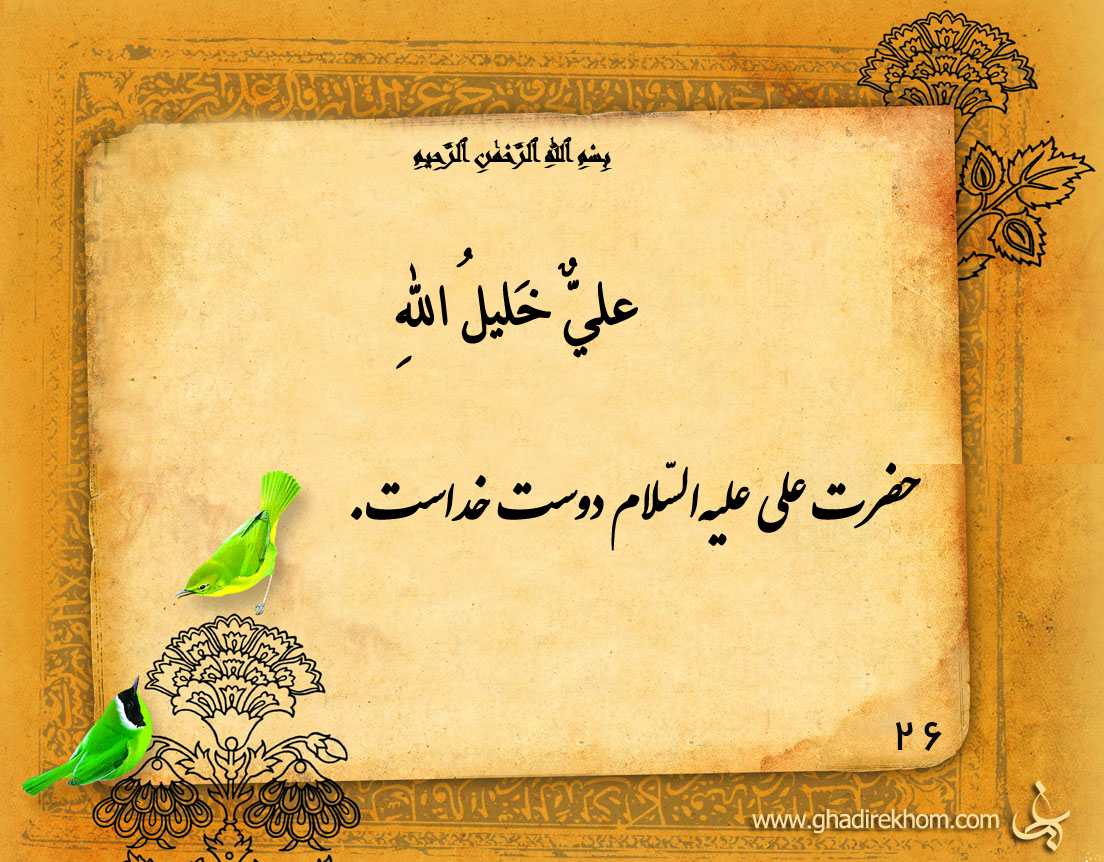 بِسْمِ ٱللَّهِ ٱلرَّحْمَٰنِ ٱلرَّحِيمِ
عليٌّ خَليلُ اللهِ
حضرت علی علیه السّلام دوست خداست.
۲۶
www.ghadirekhom.com